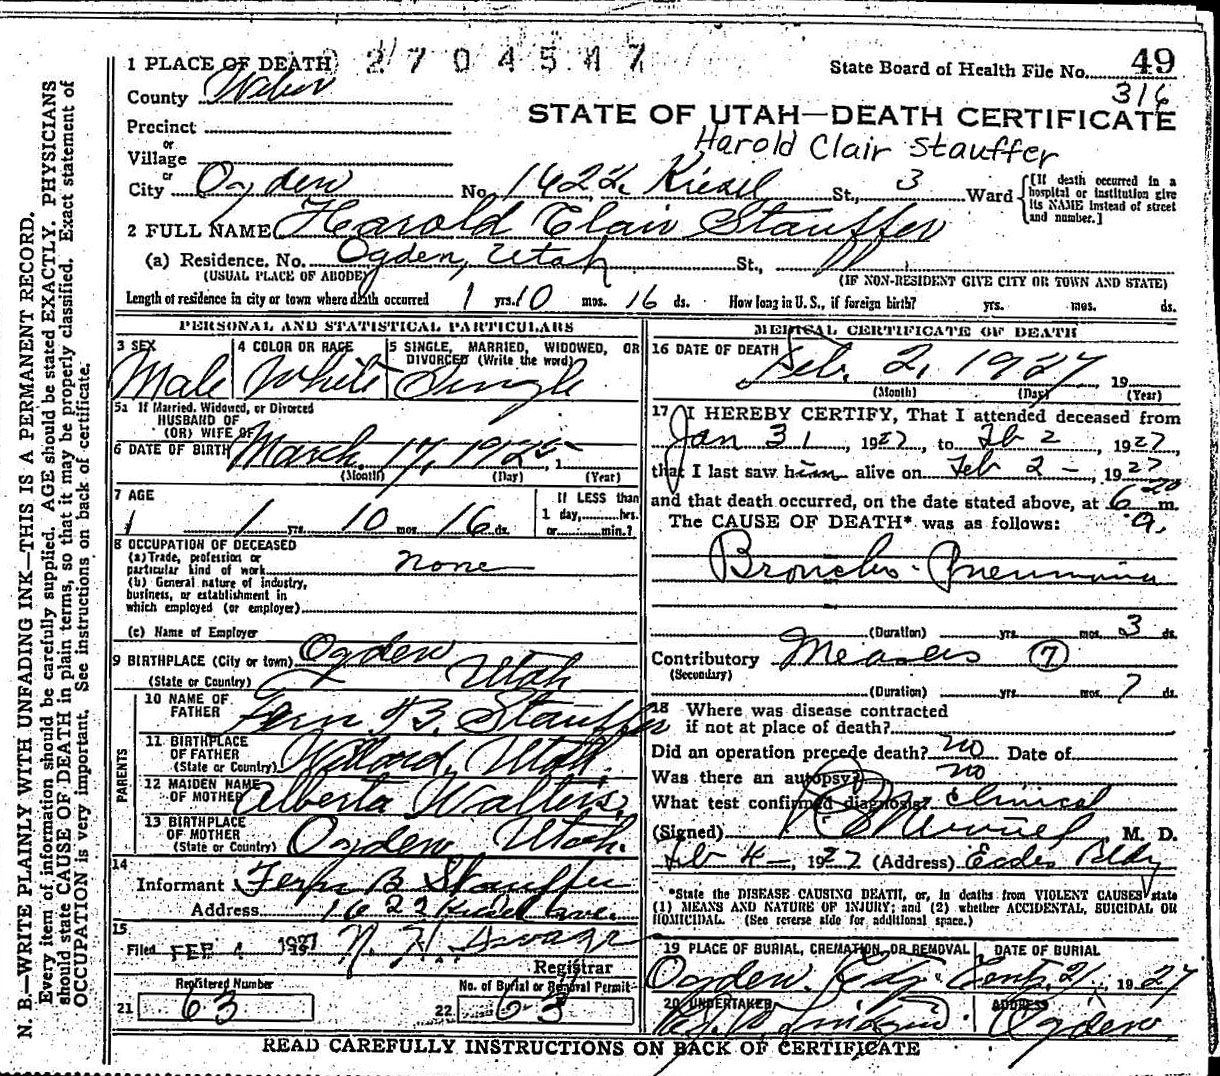 1 PLACE OF DEATH
2704517
State Board of Health File No. 49
316
County Weber
STATE OF UTAH—DEATH CERTIFICATE
Harold Clair Stauffer
Precinct
or
Village
or
City Ogden No. 1622 Kiesel St., 3 Ward
[If death occurred in a hospital or institution give its NAME instead of street and number.]
2 FULL NAME Harold Clair Stauffer
(a) Residence. No. Ogden, Utah St.,
(USUAL PLACE OF ABODE) (IF NON-RESIDENT GIVE CITY OR TOWN AND STATE)
Length of residence in city or town where death occurred 1 yrs. 10 mos. 16 ds. How long in U. S., if foreign birth? yrs. mos. ds.
PERSONAL AND STATISTICAL PARTICULARS
3 SEX Male
4 COLOR OR RACE White
5 SINGLE, MARRIED, WIDOWED, OR DIVORCED (Write the word) Single
5a If Married, Widowed, or Divorced
HUSBAND OF
(OR) WIFE OF
6 DATE OF BIRTH March 17, 1925, 1
(Month) (Day) (Year)
7 AGE
1 1 yrs. 10 mos. 16 ds.
If LESS than
1 day, hrs.
or min.?
8 OCCUPATION OF DECEASED
(a) Trade, profession or
particular kind of work none
(b) General nature of industry,
business, or establishment in
which employed (or employer)
(c) Name of Employer
9 BIRTHPLACE (City or town) Ogden
(State or Country) Utah
PARENTS
10 NAME OF FATHER Fern B. Stauffer
11 BIRTHPLACE OF FATHER
(State or Country) Willard, Utah
12 MAIDEN NAME OF MOTHER Alberta Walters
13 BIRTHPLACE OF MOTHER
(State or Country) Ogden, Utah.
14
Informant Fern B Stauffer
Address 1622 Kiesel Ave.
15
Filed FEB 4 1927
Registrar
Registered Number
21 63
No. of Burial or Removal Permit
22 63
MEDICAL CERTIFICATE OF DEATH
16 DATE OF DEATH Feb. 2, 1927, 19
(Month) (Day) (Year)
17 I HEREBY CERTIFY, That I attended deceased from
Jan 31, 1927 to Feb 2, 1927,
that I last saw him alive on Feb 2 -, 1927
and that death occurred, on the date stated above, at 6 20 m.
The CAUSE OF DEATH* was as follows: a.
Broncho-Pneumonia
(Duration) yrs. mos. 3 ds.
Contributory Measles 7
(Secondary)
(Duration) yrs. mos. 7 ds.
18 Where was disease contracted
if not at place of death?
Did an operation precede death? no Date of
Was there an autopsy? no
What test confirmed diagnosis? Clinical
(Signed) M. D.
Feb 4 -, 1927 (Address) Eccles Bldg
*State the DISEASE CAUSING DEATH, or, in deaths from VIOLENT CAUSES state
(1) MEANS AND NATURE OF INJURY; and (2) whether ACCIDENTAL, SUICIDAL OR
HOMICIDAL. (See reverse side for additional space.)
19 PLACE OF BURIAL, CREMATION, OR REMOVAL DATE OF BURIAL
Ogden City 1927
20 UNDERTAKER ADDRESS
Ogden
READ CAREFULLY INSTRUCTIONS ON BACK OF CERTIFICATE
N. B.—WRITE PLAINLY WITH UNFADING INK—THIS IS A PERMANENT RECORD.
Every item of information should be carefully supplied. AGE should be stated EXACTLY. PHYSICIANS
should state CAUSE OF DEATH in plain terms, so that it may be properly classified. Exact statement of
OCCUPATION is very important. See instructions on back of certificate.